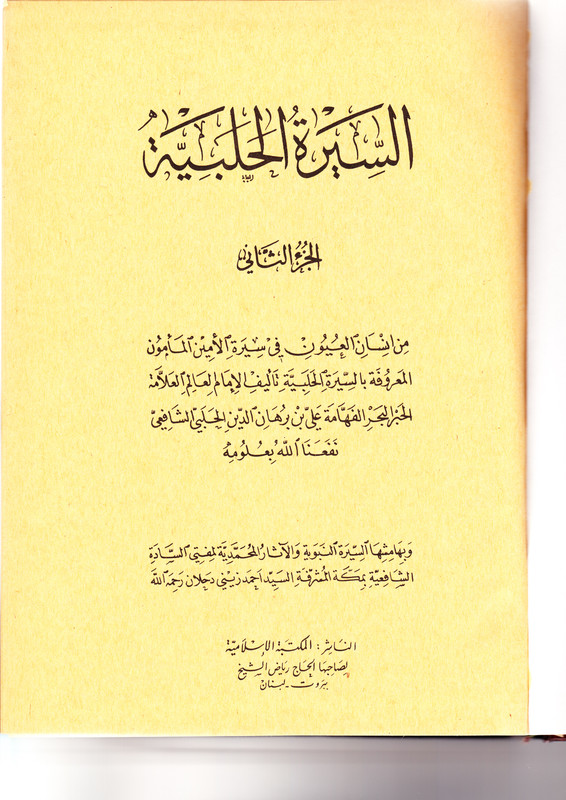 السِّيرَةُ الحَلَبِيَّةُ
الجُزءُ الثَّاني
مِن اِنسَان العُيُونِ في سِيرَة الأمِين المَأمُون
المَعرُوفَة بالسِّيرَة الحَلَبيَّة تَأليف الإمام العَالِم العَلَّامَة
الحَبْر البَحر الفَهَّامَة عَليّ بن برهَان الدِّين الحلَبي الشَافِعيّ
نَفَعَنَا اللّٰه بِعُلُومِه
وَبهَامِشهَا السِّيرَة النَبَوية وَالآثار المُحَمَّديَّة لمفتي السَّادَة
الشافعيَّة بمَكَة المُشَرَّفَة السَيِّد احمَد زَيني دَحلان رَحِمَه اللّٰه
النَاشِر: المكتبَة الإسْلاميّة
لصَاحبهَا الحَاج ريَاض الشيخ
بَيروت - لبنَان